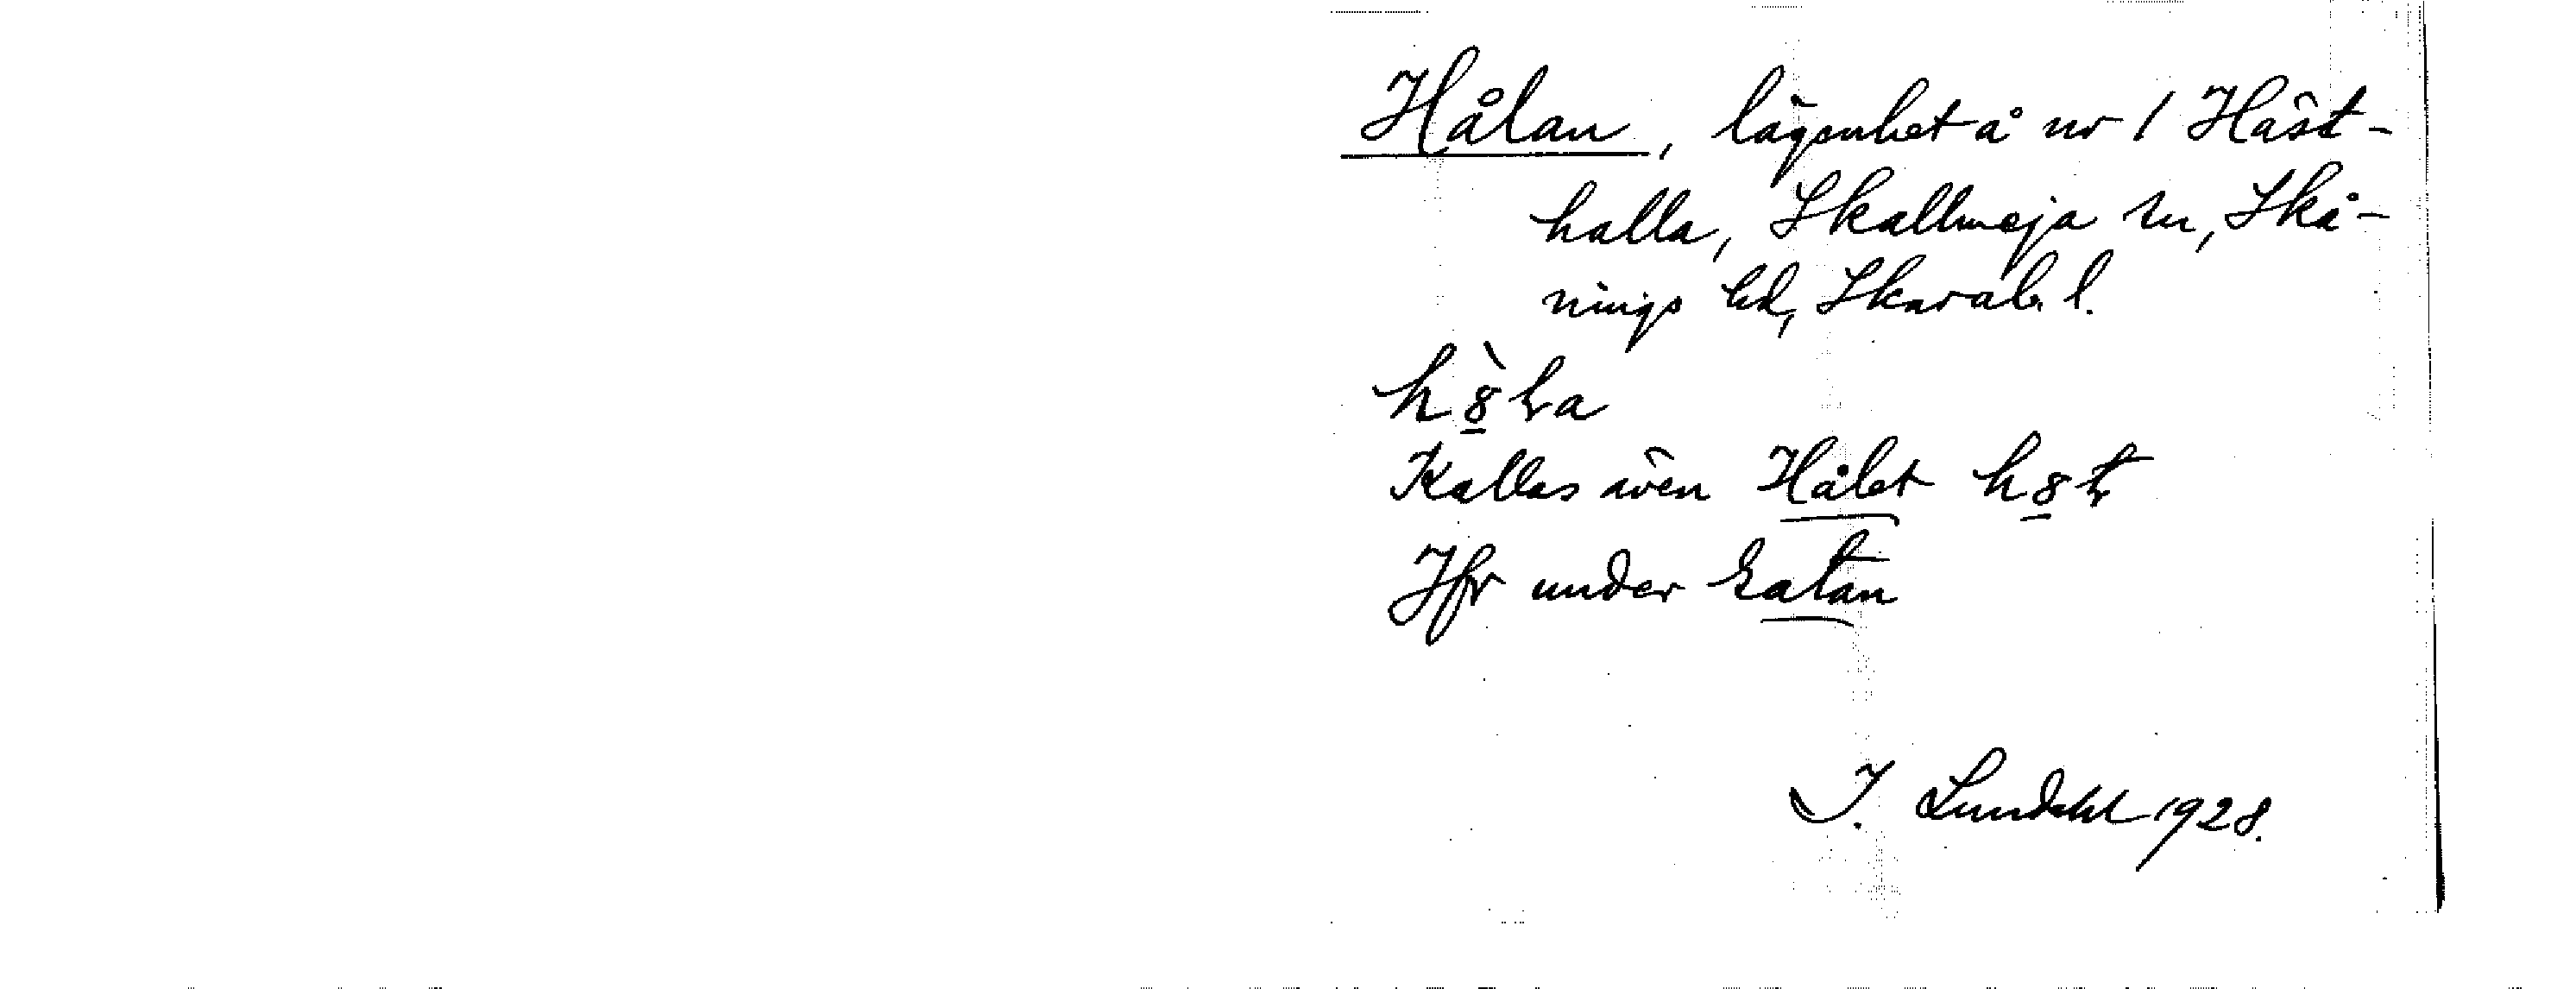 Hålan, lägenhet å nr 1 Häst-
halla, Skallmeja sn, Skå-
nings hd, Skarab. l.
Kallas även Hålet
Jfr under Gatan
I. Lundahl 1928.